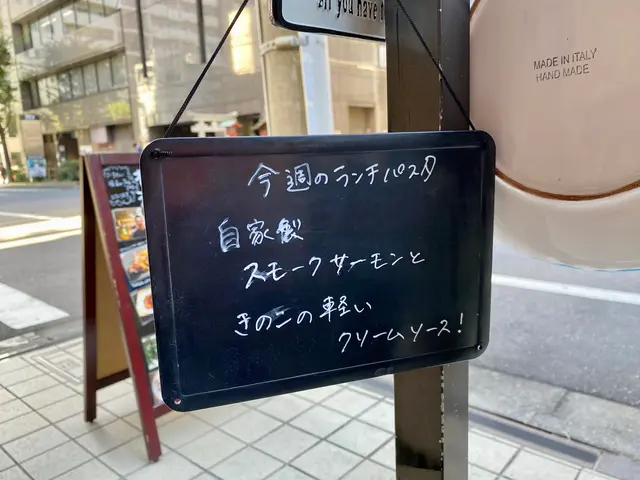 all you have t
MADE IN ITALY
HAND MADE
今週のランチパスタ
自家製
スモークサーモンと
きのこの軽い
クリームソース!